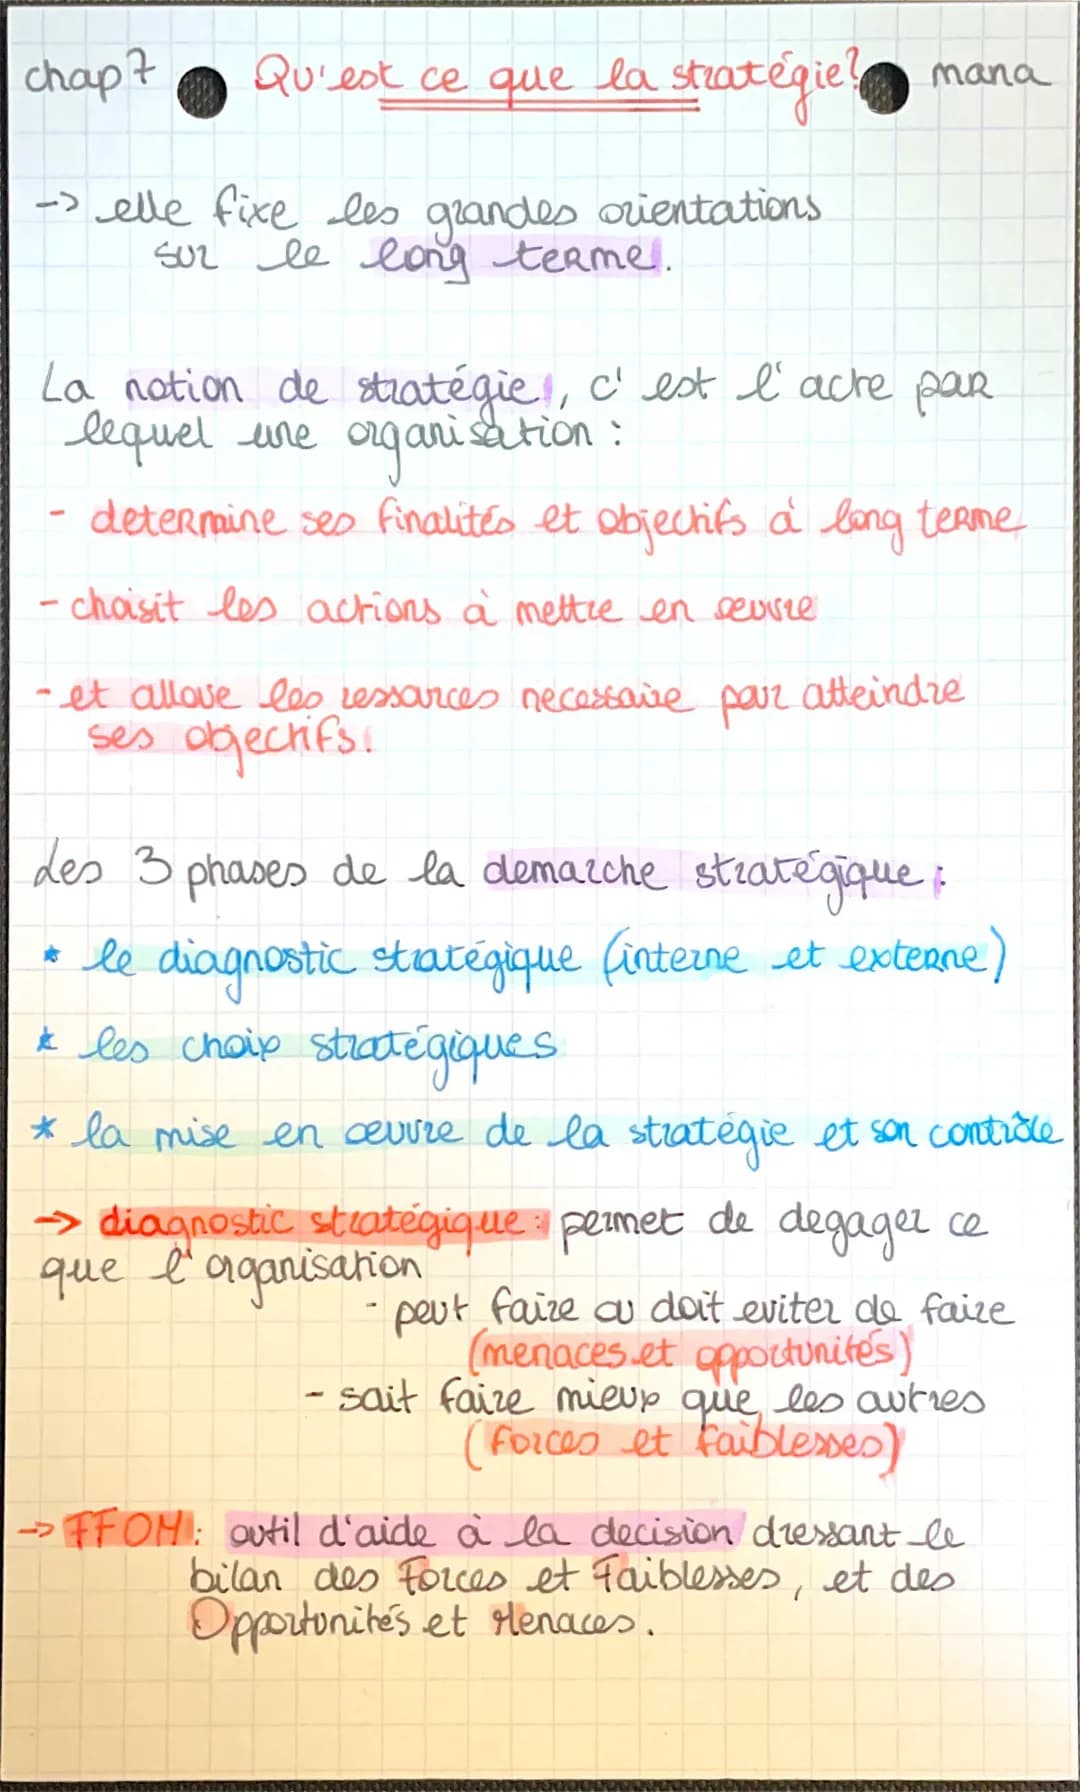 chap 7 Qu'est ce que la stratégie? mana
-> elle fixe les grandes orientations
sur le long terme.
La notion de stratégie, c'est l'acte par
lequel une organisation :
- determine ses finalités et objectifs à long terme
- choisit les actions à mettre en œuvre
- et alloue les ressources necessaire pour atteindre
ses objectifs.
Les 3 phases de la demarche stratégique :
* le diagnostic stratégique (interne et externe)
* les choix stratégiques
* la mise en œuvre de la stratégie et son contrôle
-> diagnostic stratégique : permet de degager ce
que l'organisation
- peut faire ou doit eviter de faire
(menaces et opportunités)
- sait faire mieux que les autres
(forces et faiblesses)
-> FFOM : outil d'aide à la decision dressant le
bilan des Forces et Faiblesses, et des
Opportunités et Menaces.